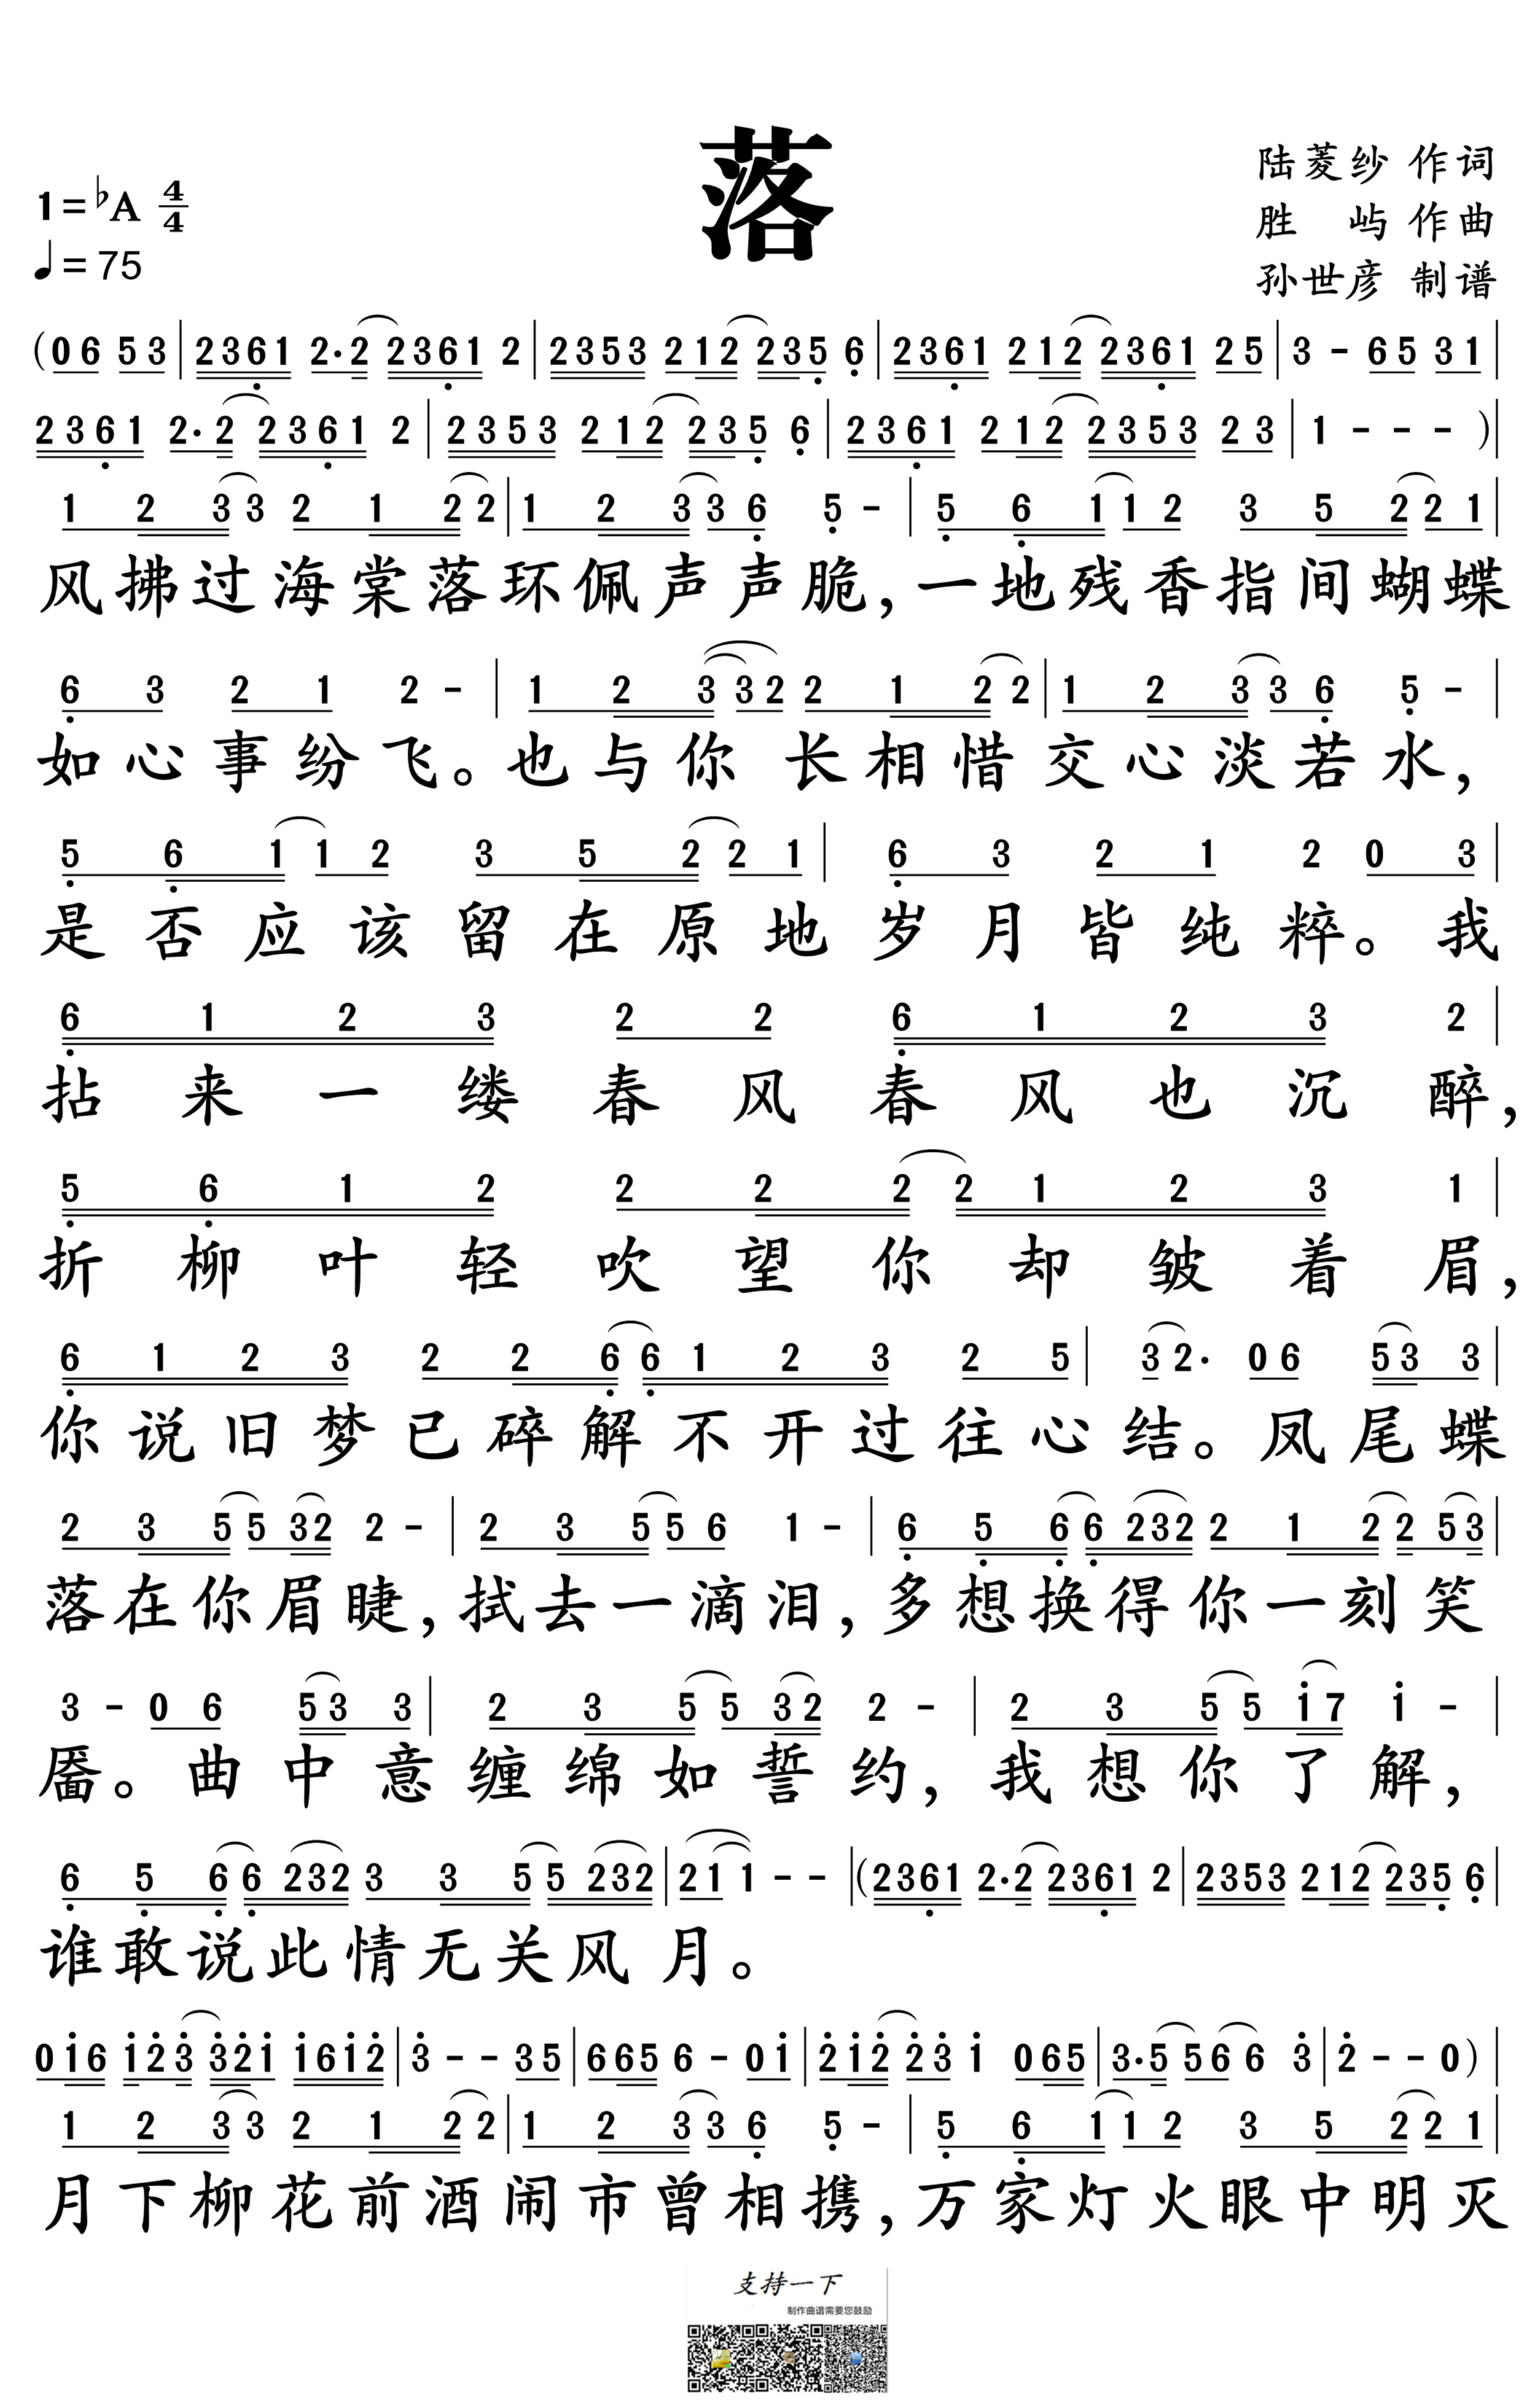 落
1=♭A 4/4
♩=75
陆菱纱 作词
胜 屿 作曲
孙世彦 制谱
(06 53|2361 2·2 2361 2|2353 212 235 6|2361 212 2361 25|3 - 65 31|
2361 2·2 2361 2|2353 212 235 6|2361 212 2353 23|1 - - - )|
1 2 3 3 2 1 2 2|1 2 3 3 6 5 -|5 6 1 1 2 3 5 2 2 1|
风拂过海棠落环佩声声脆,一地残香指间蝴蝶
6 3 2 1 2 -|1 2 3 3 2 2 1 2 2|1 2 3 3 6 5 -|
如心事纷飞。也与你长相惜交心淡若水,
5 6 1 1 2 3 5 2 2 1|6 3 2 1 2 0 3|
是否应该留在原地岁月皆纯粹。我
6 1 2 3 2 2 6 1 2 3 2|
拈来一缕春风春风也沉醉,
5 6 1 2 2 2 2 2 1 2 3 1|
折柳叶轻吹望你却皱着眉,
6 1 2 3 2 2 6 6 1 2 3 2 5|3 2· 0 6 5 3 3|
你说旧梦已碎解不开过往心结。凤尾蝶
2 3 5 5 3 2 2 -|2 3 5 5 6 1 -|6 5 6 6 232 2 1 2 2 5 3|
落在你眉睫,拭去一滴泪,多想换得你一刻笑
3 - 0 6 5 3 3|2 3 5 5 3 2 2 -|2 3 5 5 i 7 i -|
靥。曲中意缠绵如誓约,我想你了解,
6 5 6 6 232 3 3 5 5 232|2 1 1 - -|(2361 2·2 2361 2|2353 212 235 6|
谁敢说此情无关风月。
0i6 i23 32i i6i2|3 - - 35|665 6 - 0i|2i2 23 i 065|3·5 56 6 3|2 - - 0)|
1 2 3 3 2 1 2 2|1 2 3 3 6 5 -|5 6 1 1 2 3 5 2 2 1|
月下柳花前酒闹市曾相携,万家灯火眼中明灭
支持一下
制作曲谱需要您鼓励